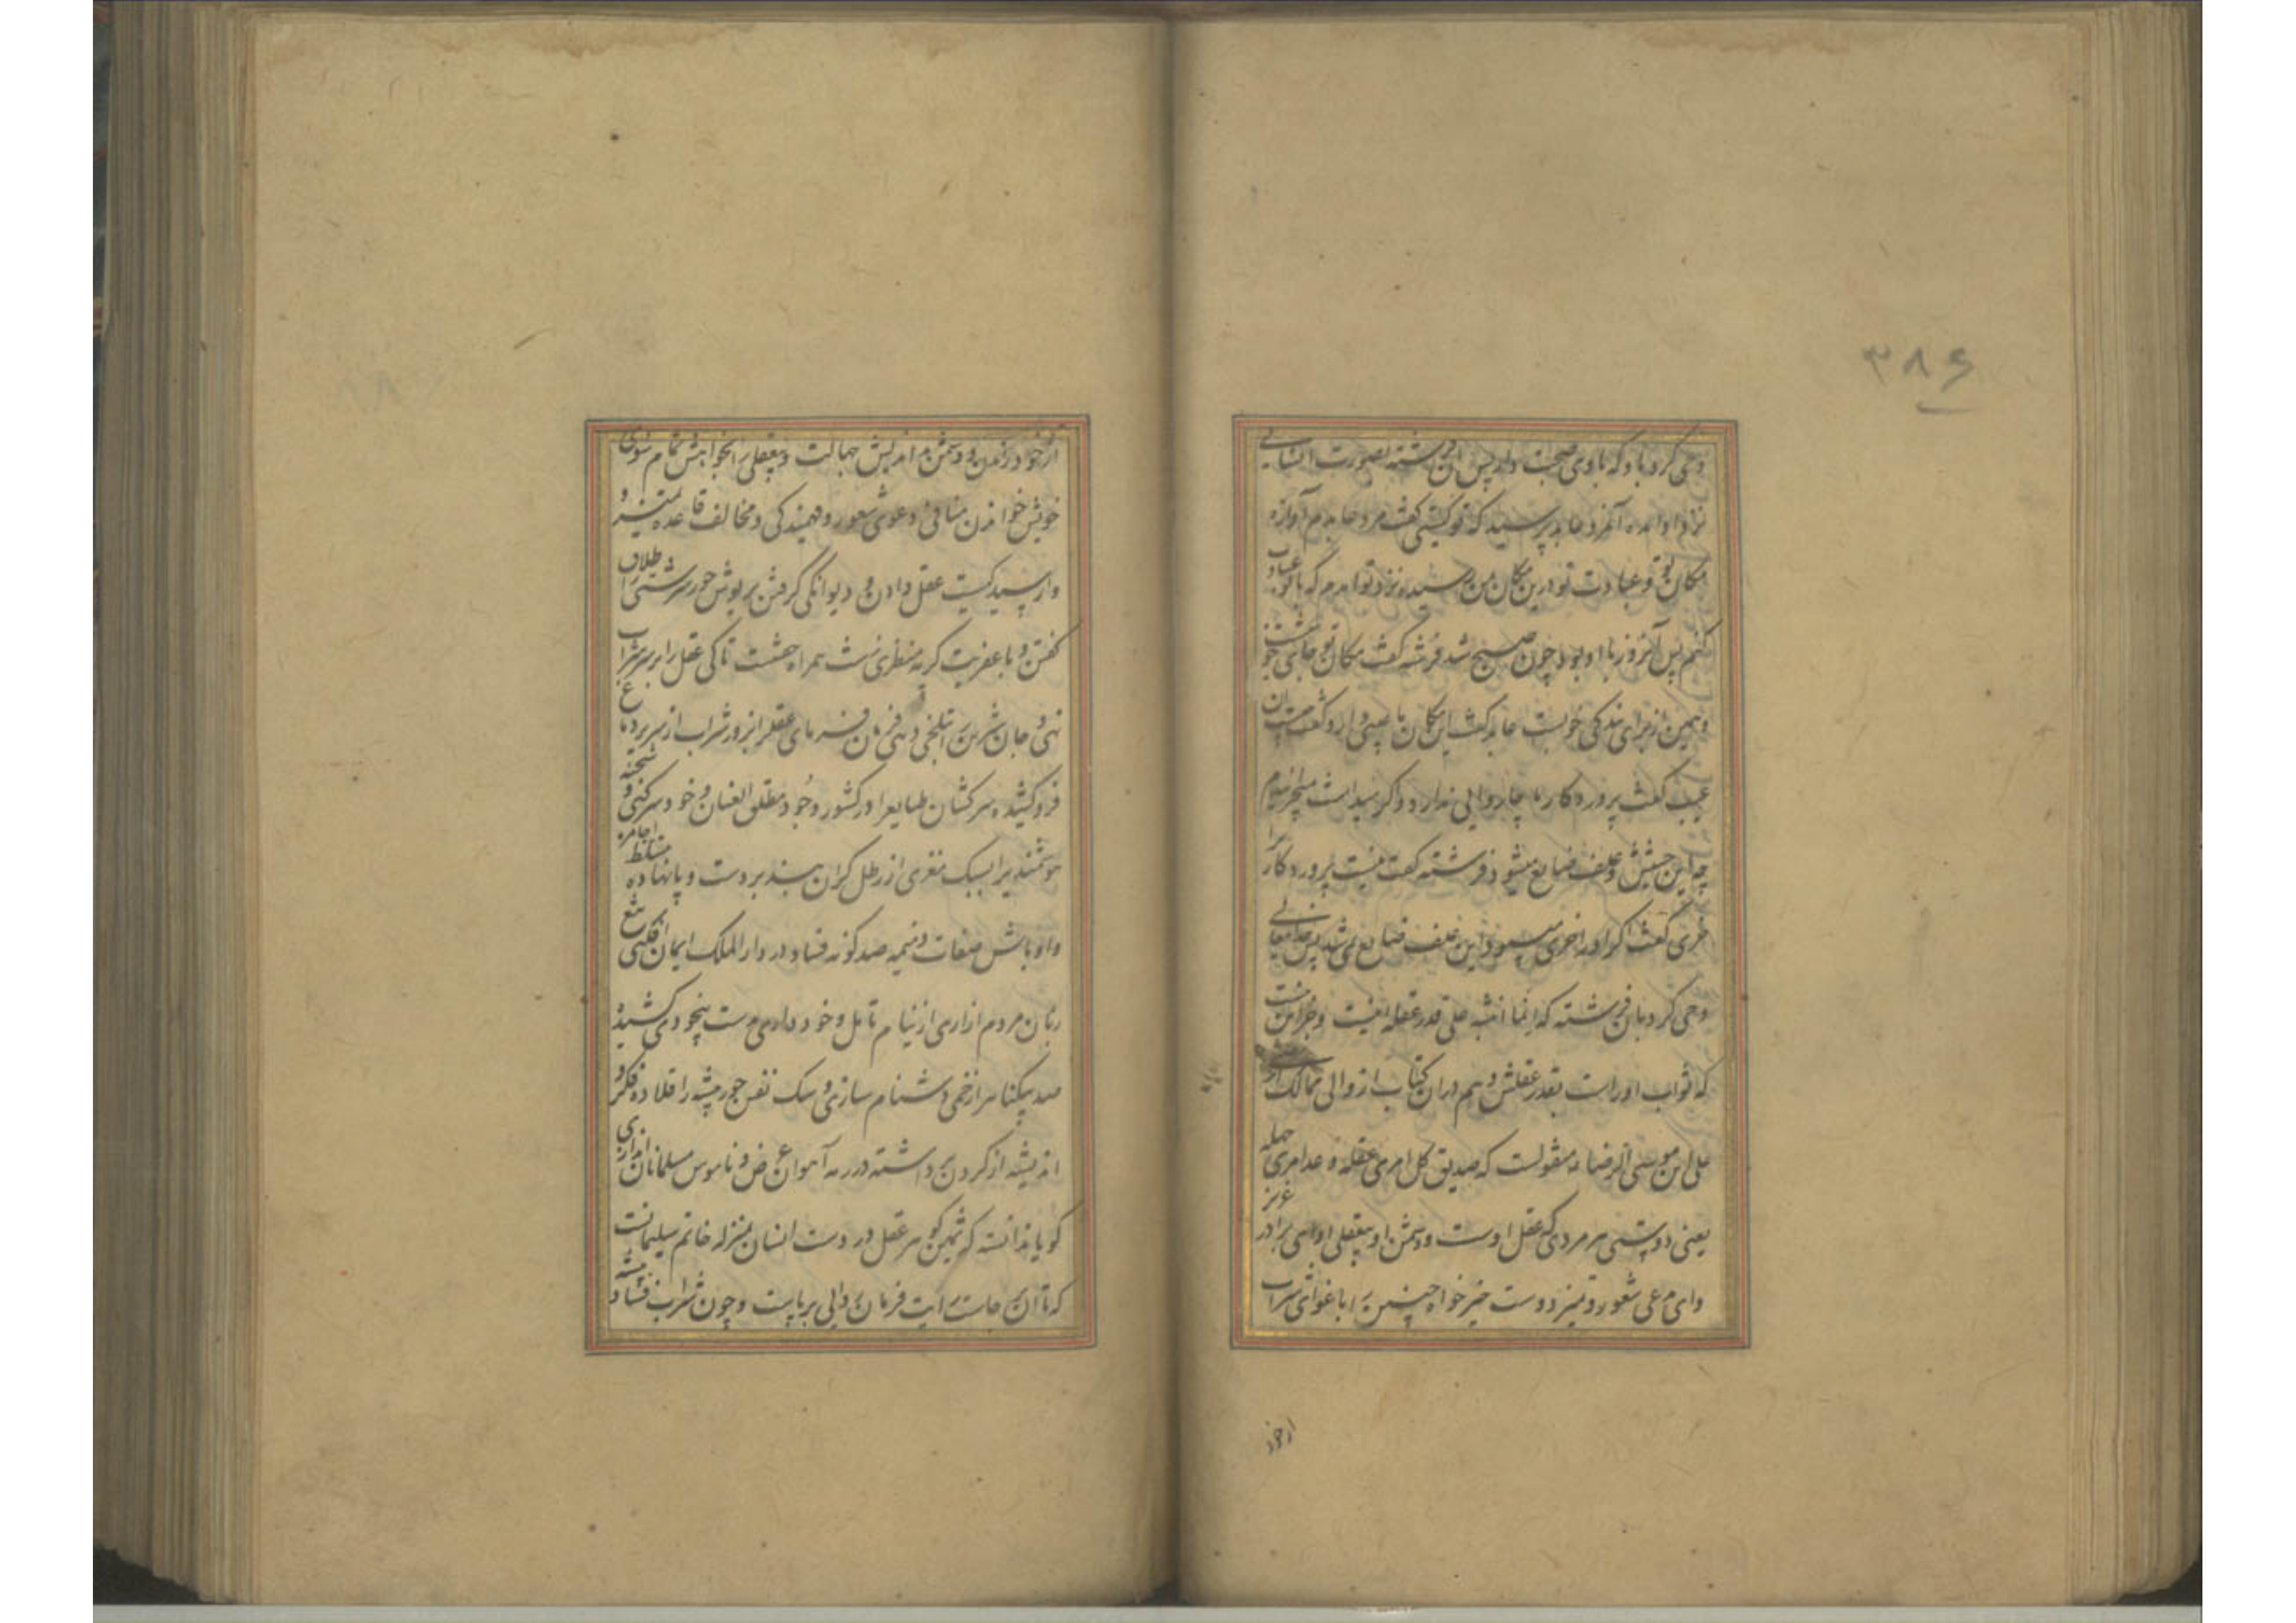 ۳۸۶
وحی کرد باو که با وی صحبت دار پس آن فرشته بصورت انسانی
نزد او آمد آنمرد عابد پرسید که تو کیستی گفت مرد عابدم آوازه
مکان تو و عبادت تو درین مکان بمن رسید نزد تو آمدم که با تو عبادت
کنم پس آنروز با او بود چون صبح شد فرشته گفت مکان تو جای
و همین از برای بندگی خوبست عابد گفت این مکان ما عیبی دارد گفت چیست آن
عیب گفت پروردگار ما چاروایی ندارد و اگر میداشت میچرانیدم
چه این حشیش و علف ضایع میشود فرشته گفت نیست پروردگار را
خری گفت اگر او را خری میبود این علف ضایع نمیشد پس خدایتعالی
وحی کرد بآن فرشته که انما اثیبه علی قدر عقله
که ثواب او راست بقدر عقلش و هم در آن کتاب از والی ممالک
علی ابن موسی الرضا منقولست که صدیق کل امرء عقله و عدوه جهله
یعنی دوست هر مردی عقل اوست و دشمن او بیعقلی او ای برادر عزیز
و ای مدعی شعور و تمیز دوست خیرخواه چنین را باغوای شراب
از خود
از خود راندن و دشمن بد اندیش جهالت و بیعقلی را بخواهش تمام سوی
خویش خواندن منافی دعوی شعور و فهمیدگی و مخالف قاعده تمیز و
وارسیدگیست عقل دادن و دیوانگی گرفتن پریوش حورسرشتی را طلاق
گفتن و با عفریت کریه منظری زشت همراه خفتن تا کی عقل را بر سر شراب
نهی و جان شیرین را بتلخی دهی فرمان فرمای عقل را بزور شراب از سریر دماغ
فرو کشیده سرکشان طبایع را در کشور وجود مطلق العنان و خودسر کنی و شحنه
هوشمندی را بسبک مغزی از رطل گران بند بر دست و پا نهاده
و اوباش صفات ذمیمه صد گونه فساد در دار الملک ایمان افکنی تیغ
زبان مردم آزاری از نیام تامل و خودداری بدست بیخودی کشیده
صد بیگناه را زخمی دشنام سازی و سگ نفس جور پیشه را قلاده فکر و
اندیشه از گردن برداشته در رمه آهوان عرض و ناموس مسلمانان اندازی
گویا ندانسته که ثمین گوهر عقل در دست انسان بمنزله خاتم سلیمانست
که تا آن بر جاست رایت فرمان روایی برپاست و چون شراب فساد پیشه